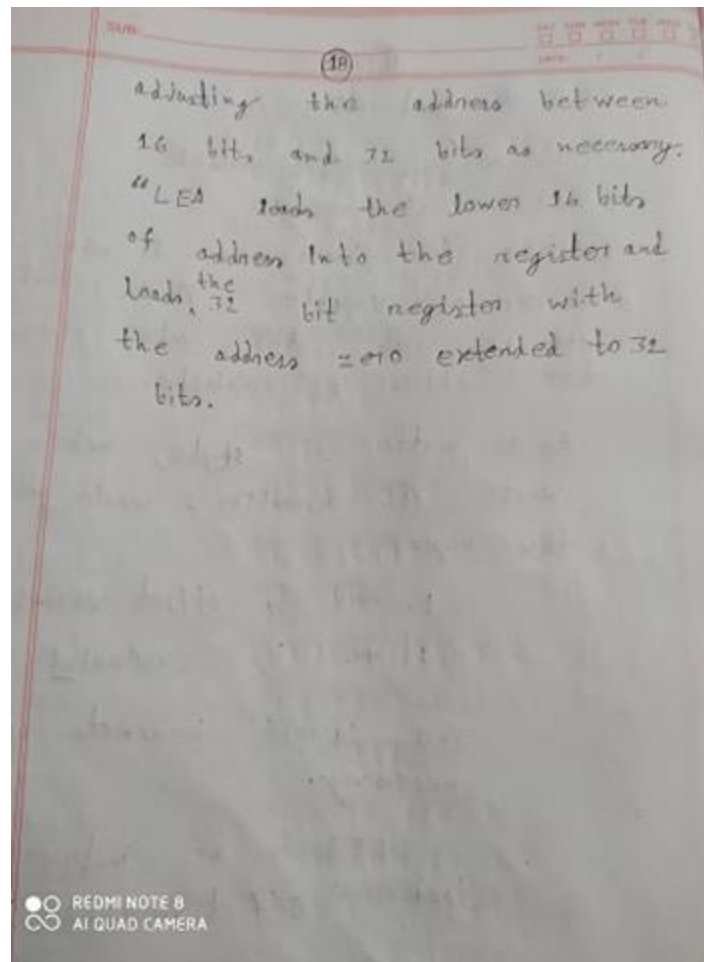 NAME:
DATE: / /
18
adjusting the address between
16 bits and 32 bits as necessary.
"LEA loads the lower 16 bits
of address into the register and
loads, the 32 bit register with
the address zero extended to 32
bits.
REDMI NOTE 8
AI QUAD CAMERA